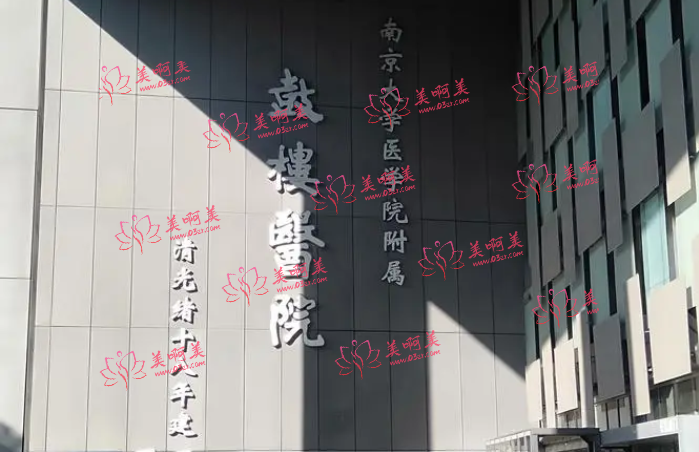 南京大学医学院附属
鼓樓醫院
清光緒十八年建
美啊美
www.03cr.com
美啊美
www.03cr.com
美啊美
www.03cr.com
美啊
www.03c
美啊美
www.03cr.com
美啊
www.03c
美啊美
www.03cr.com
美啊美
www.03cr.com
美啊美
www.03cr.com
美啊
www.03c
美啊美
www.03cr.com
美啊美
www.03cr.com